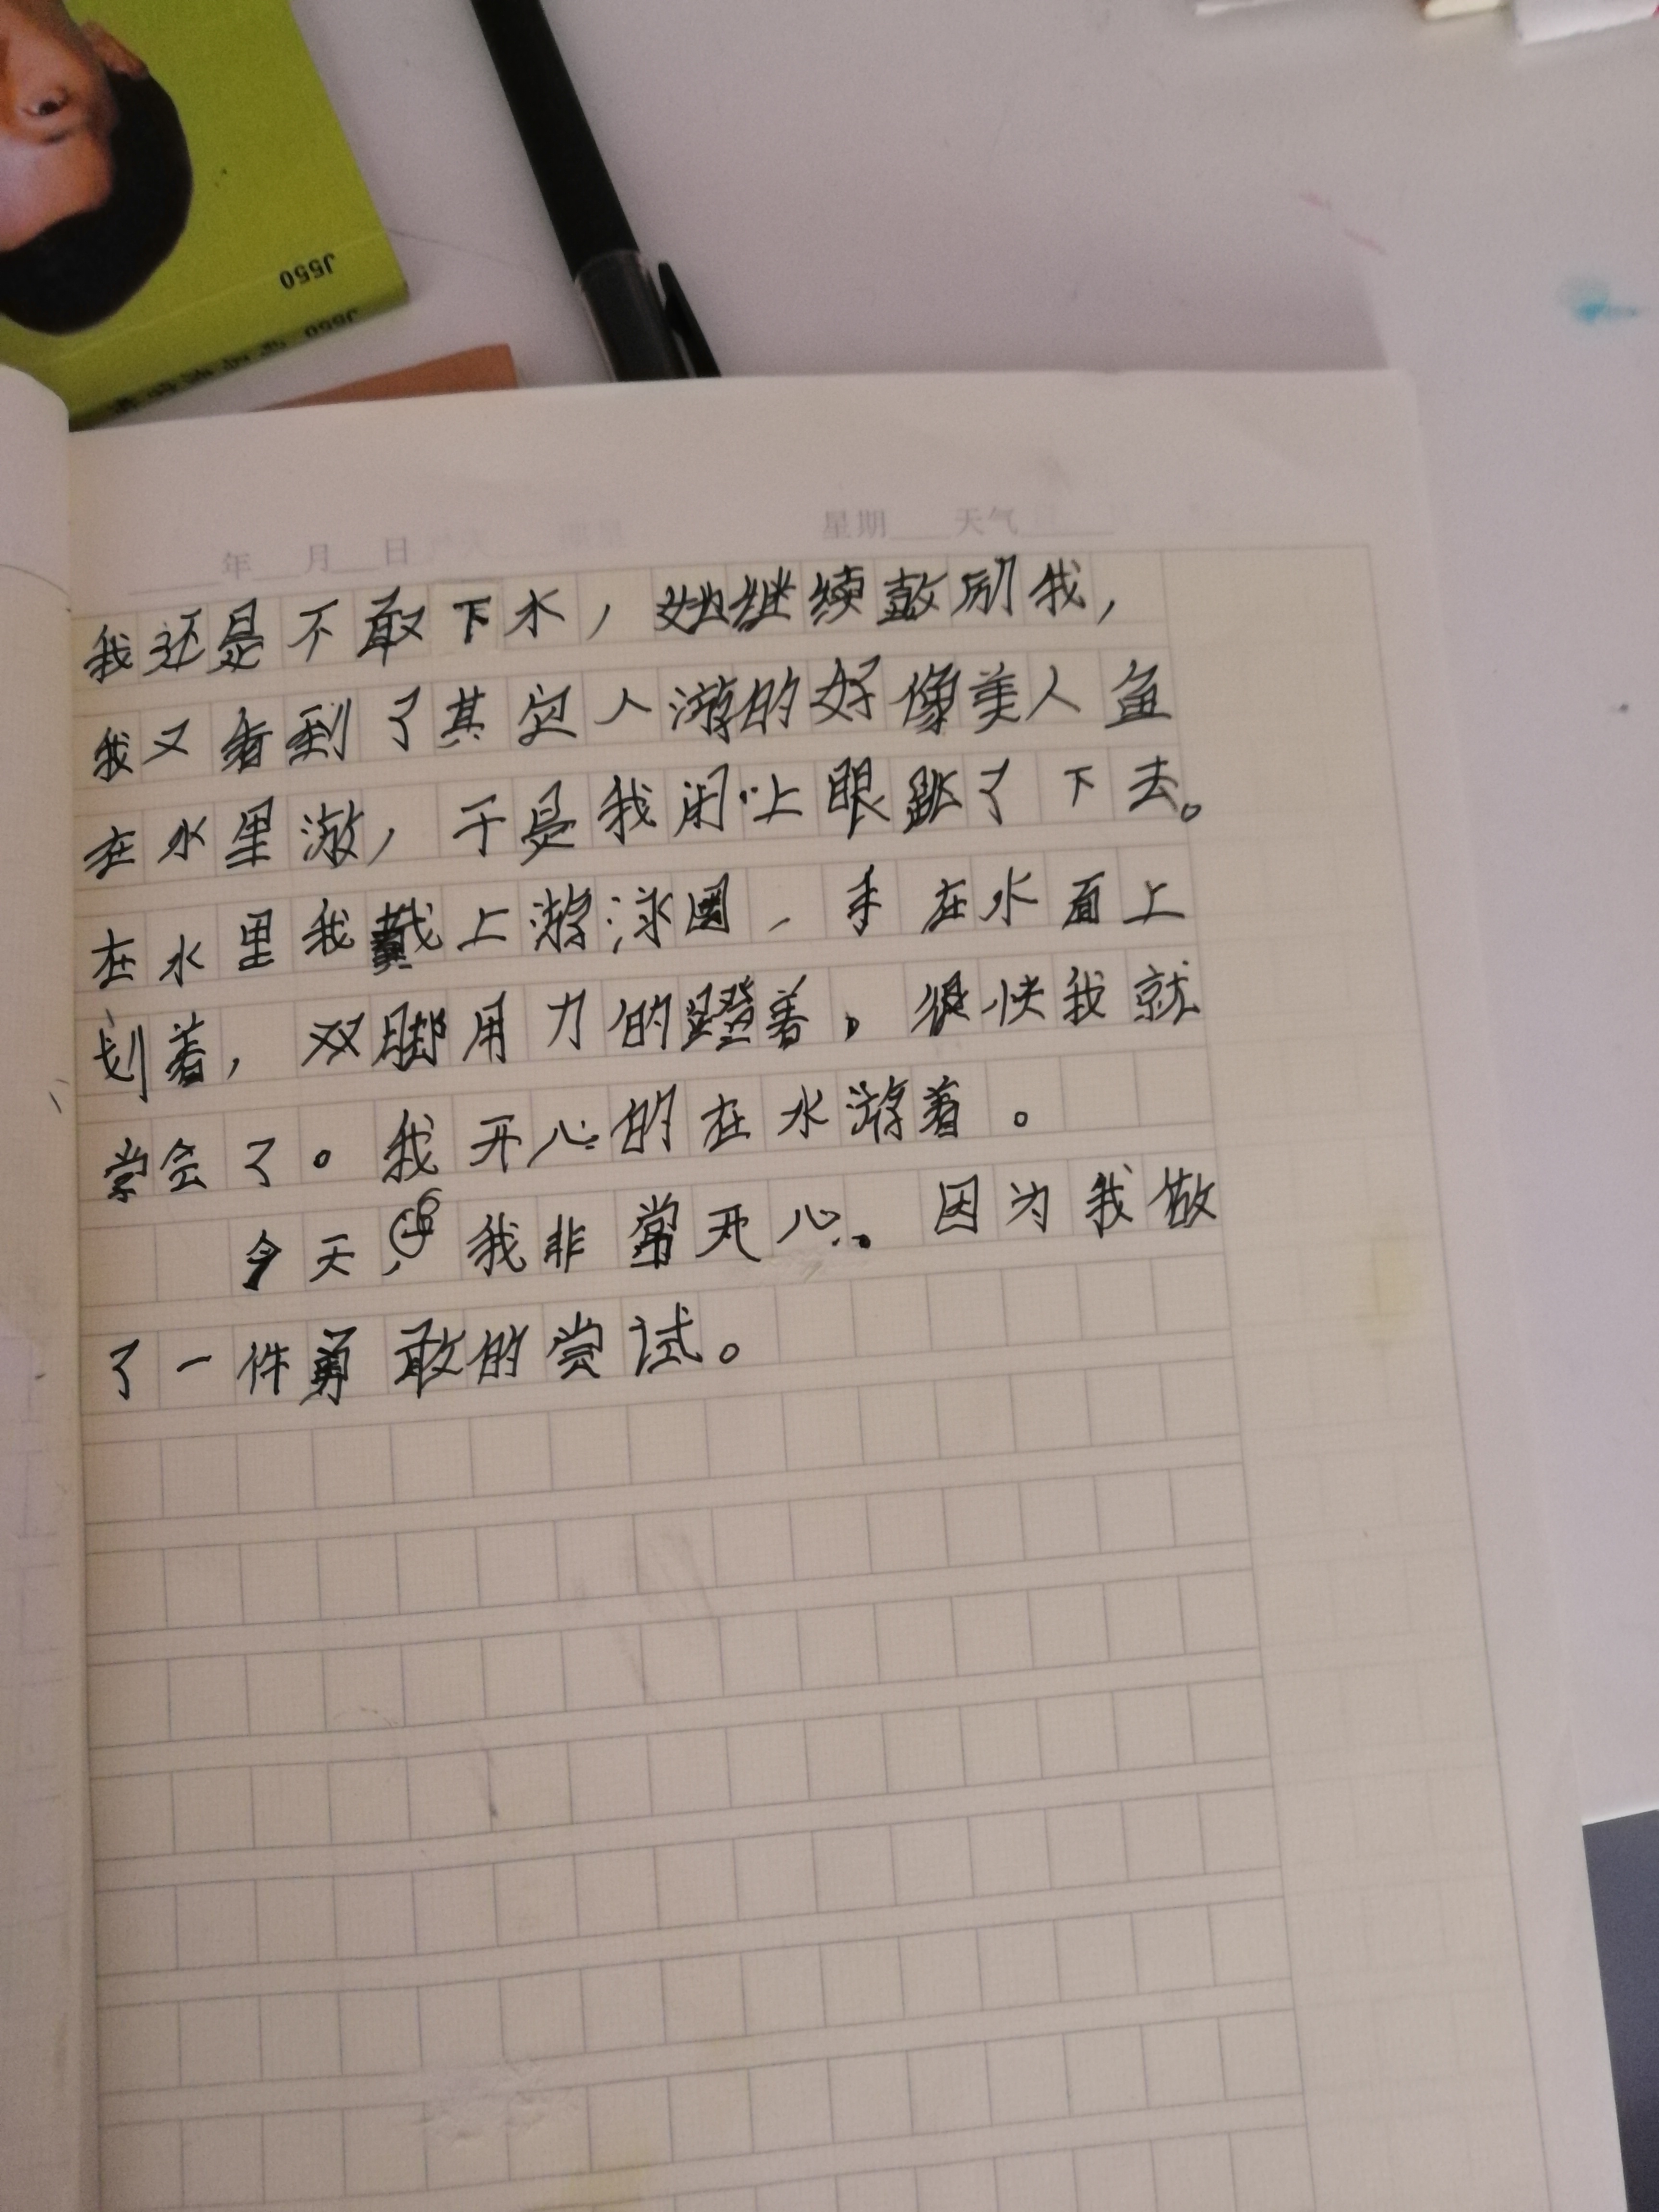 J550
J550
年 月 日 星期 天气
我还是不敢下水，她继续鼓励我，
我又看到了其它人游的好像美人鱼
在水里游，于是我闭上眼跳了下去。
在水里我戴上游泳圈，手在水面上
划着，双脚用力的蹬着。很快我就
学会了。我开心的在水游着。
今天，我非常开心。因为我做
了一件勇敢的尝试。